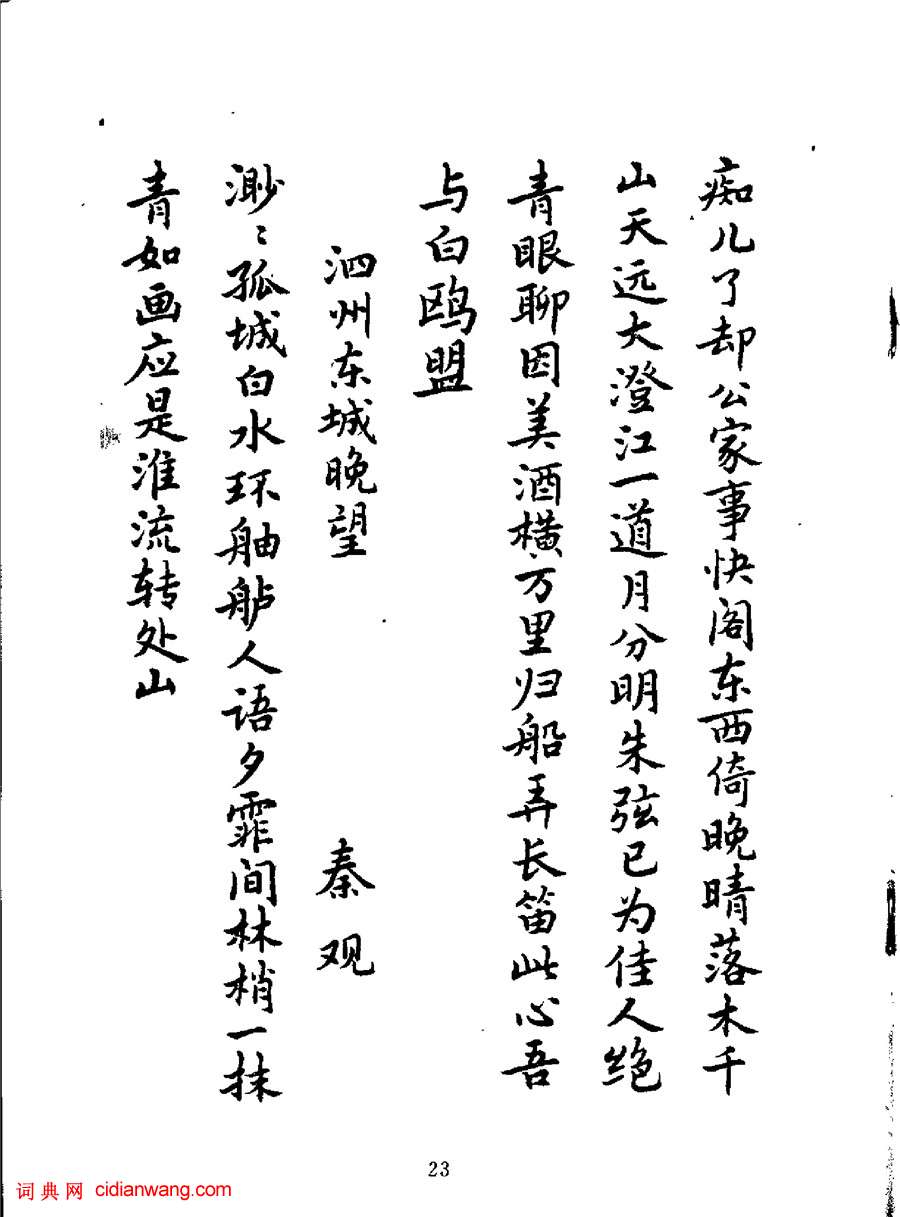 痴儿了却公家事快阁东西倚晚晴落木千
山天远大澄江一道月分明朱弦已为佳人绝
青眼聊因美酒横万里归船弄长笛此心吾
与白鸥盟
泗州东城晚望 秦观
渺〻孤城白水环舳舻人语夕霏间林梢一抹
青如画应是淮流转处山
23
词典网 cidianwang.com